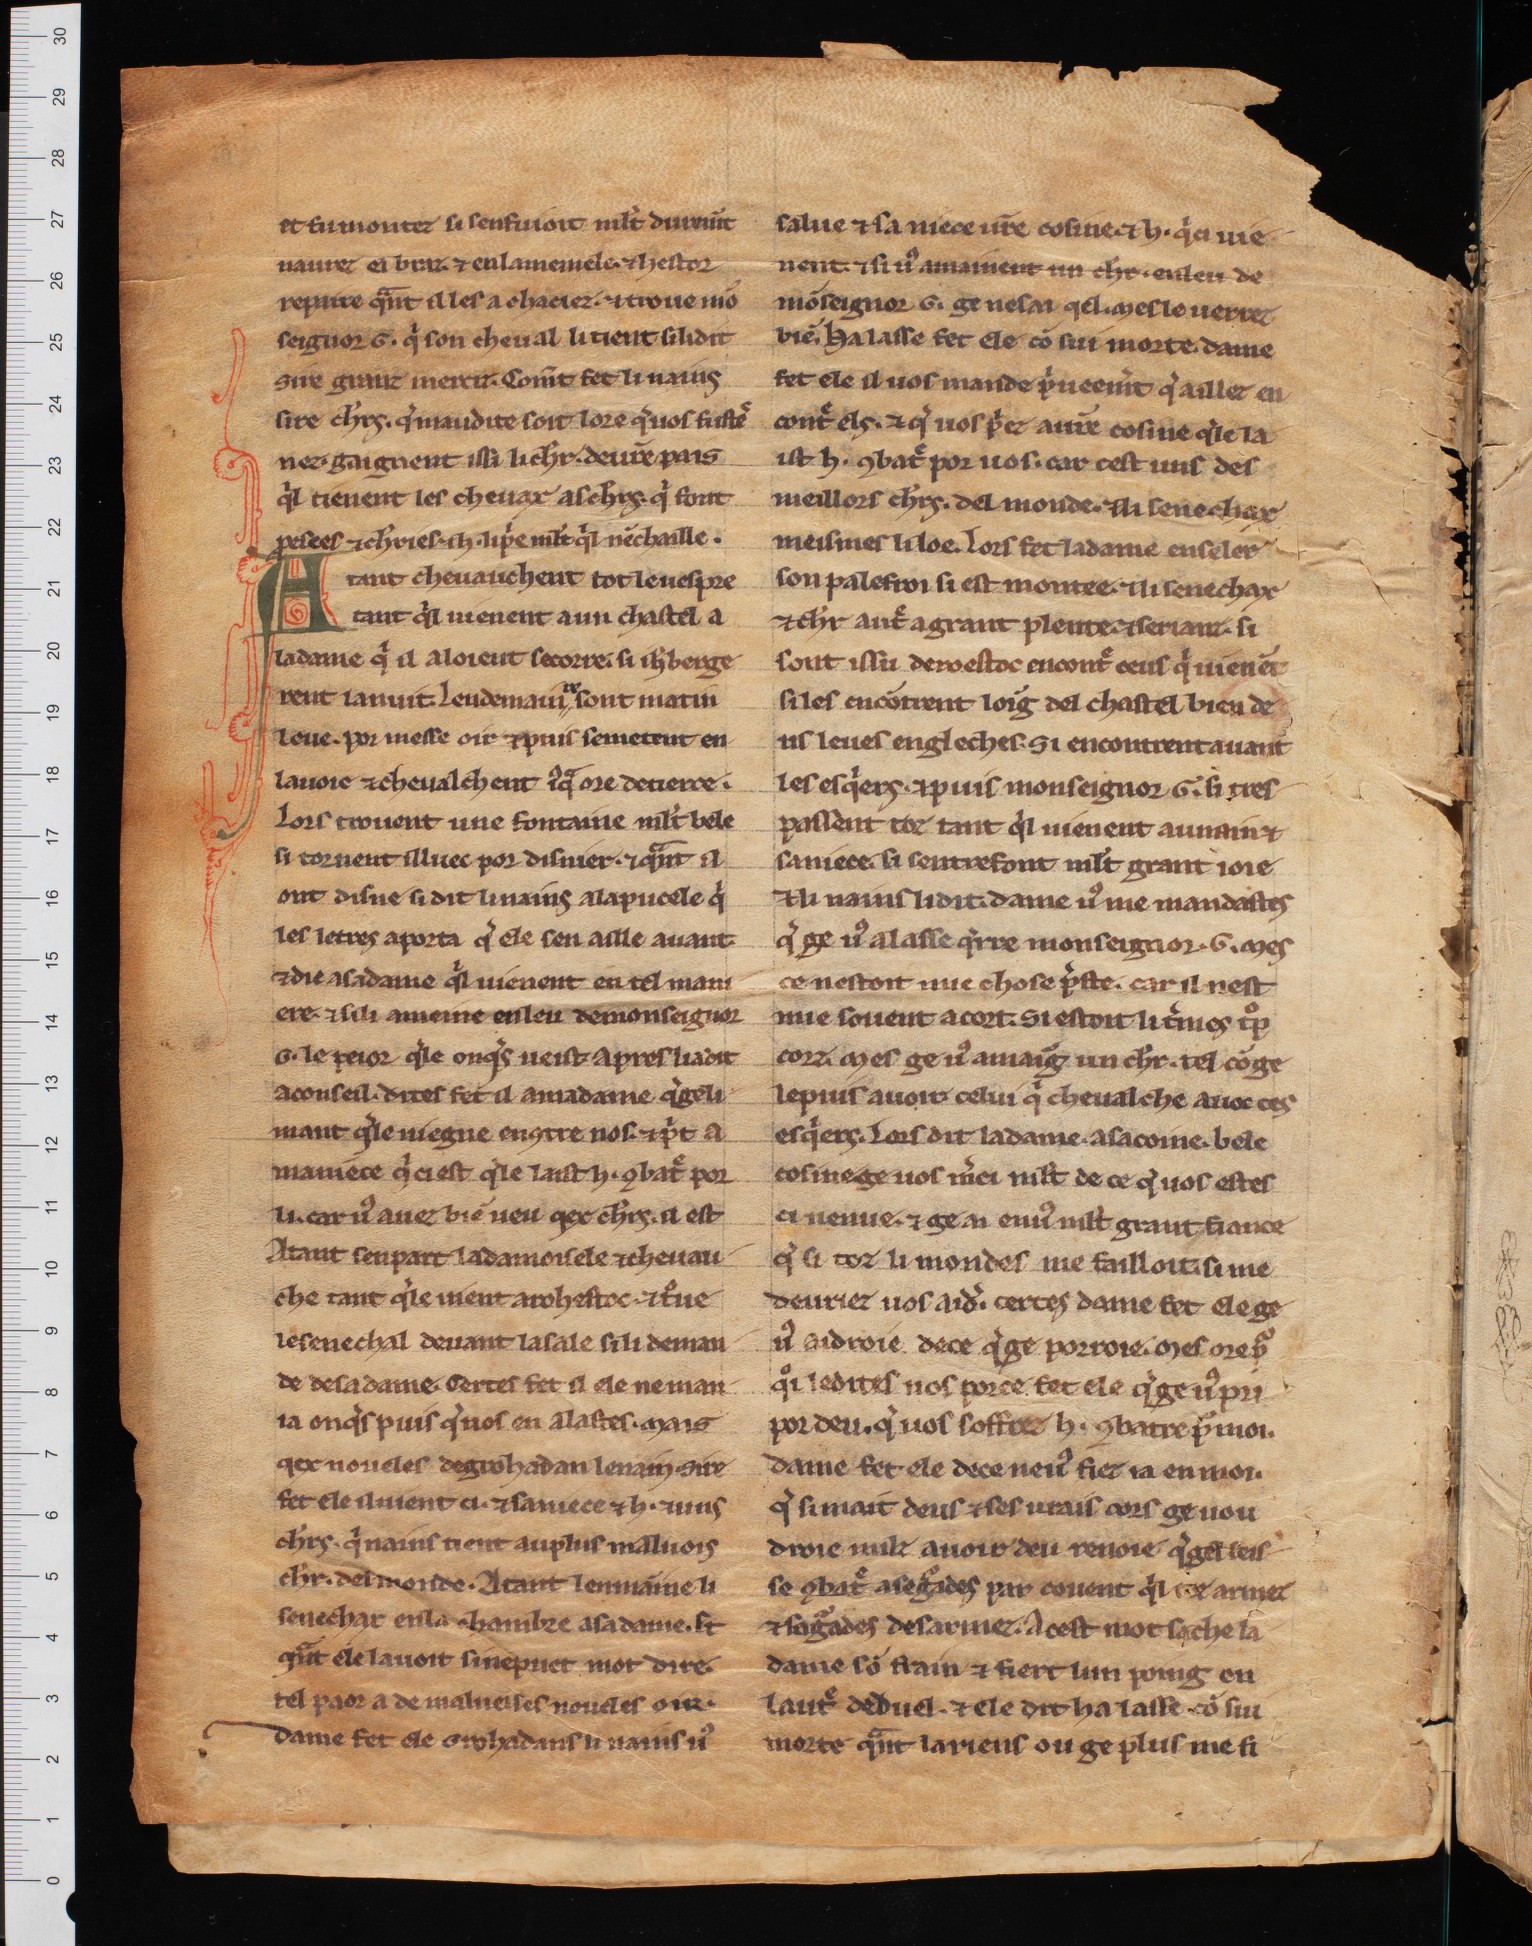 et fu montez si senfuioit ml't durem̄t
naurez el braz. ⁊ en lamemele. ⁊ hestor
repaire qᵃnt il les a chaciez. ⁊ troue mō
seignor .G. qͥ son cheual li tient si li dit
sire granz merciz. Com̄t fet li nains
sire chr̄s. qͥ maudite soit lore qͥ uos fustes
nez. gaignent issi li chr̄. deur̄e pais
qͥl tienent les cheuax as chr̄s. qͥ font
pesees ⁊ chr̄ies. ⁊ h. li p̄ie ml't qͥl nē chaille.
Atant cheuauchent tot le uespre
tant qͥl uienent a un chastel a
la dame qͥ il aloient secorre. si i h̄berge
rent la nuit. Lendemain se sont matin
leue. por messe oir ⁊ puis semetent en
la uoie ⁊ cheualchent iqᵃ ore de tierce.
Lors trouent une fontaine ml't bele
si tornent illuec por disner. ⁊ qᵃnt il
ont disne si dit li nains a la pucele qͥ
les letres aporta qͥ ele sen aille auant.
⁊ die a sa dame qͥl uienent en tel mani
ere. ⁊ si li ameine en leu de monseignor
.G. le peior qͥle onqͥs ueist. Apres li a dit
a conseil. dites fet il a ma dame qͥ ge li
mant qͥle uiegne encōtre nos. ⁊ pͥt a
ma niece qͥ ci est qͥle laist .h. ꝯbatͬ por
li. car uͦ auez biē ueu qex chr̄s. il est
Atant senpart la damoisele ⁊ cheuau
che tant qͥle uient a rohestoc. ⁊ tͦue
le senechal deuant la sale si li deman
de de sa dame. Certes fet il ele ne man
ia onqͥs puis qͥ uos en alastes. mais
qex noueles de grohadan le nain. Sire
fet ele il uient ci. ⁊ sa niece ⁊ .h. ⁊ uns
chr̄s. qͥ nains tient au plus maluois
chr̄. del monde. Atant lenmaine li
senechax en la chambre a sa dame. Et
qᵃnt ele lauoit si ne puet mot dire.
tel paor a de malueises noueles oir.
dame fet ele grohadans li nains uͦ
salue ⁊ sa niece ur̄e cosine. ⁊ .h. qͥ ci uie
nent. ⁊ si uͦ amainent un chr̄. en leu de
mōseignor .G. ge ne sai qel. mes le uerrez
biē. Ha lasse fet ele cō sui morte. dame
fet ele il uos mande p̄ueem̄t qͥ ailliez en
contͬ els. ⁊ qͥ uos pͥez aur̄e cosine qͥle la
ist .h. ꝯbatͬ por uos. car cest uns des
meillors chr̄s. del monde. ⁊ li senechax
meismes li loe. Lors fet la dame enseler
son palefroi si est montee. ⁊ li senechax
⁊ chr̄ autͬ a grant plente. ⁊ serianz. si
sont issu de roestoc encontͬ ceus qͥ uienēt
si les encōtrent loīg del chastel bien de
us leues engleches. Si encontrent auant
les esqͥers. ⁊ puis monseignor .G. si tres
passent toz tant qͥl uienent au nain ⁊
sa niece. si sentrefont ml't grant ioie
⁊ li nains li dit. dame uͦ me mandastes
qͥ ge uͦ alasse qͥrre monseignor .G. mes
ce nestoit mie chose p̄ste. car il nest
mie souent a cort. Si estoit li t̄mes tͦp
corz. mes ge uͦ amaīg un chr̄. tel cō ge
le puis auoir celui qͥ cheualche auoc ces
esqͥers. Lors dit la dame a sa cosine. bele
cosine ge uos m̄ci ml't de ce qͥ uos estes
ci uenue. ⁊ ge ai en uͦ ml't grant fiance
qͥ si toz li mondes me failloit. si me
deuriez uos aidͬ. certes dame fet ele ge
uͦ aidroie de ce qͥ ge porroie. mes ore pͦ
qͦi le dites uos por ce fet ele qͥ ge uͦ pri
por deu. qͥ uos soffrez .h. ꝯbatre p̄ moi.
dame fet ele de ce ne uͦ fiez ia en moi.
qͥ si mait deus ⁊ ses urais cors ge uou
droie mielz auoir deu renoie qͥ gel leis
se ꝯbatͬ a segͬades par couent qͥl fust armez
⁊ segͬades desarmez. A cest mot sache la
dame sō frain ⁊ fiert lun poing en
lautͬ de duel. ⁊ ele dit ha lasse cō sui
morte qᵃnt la riens ou ge plus me fi